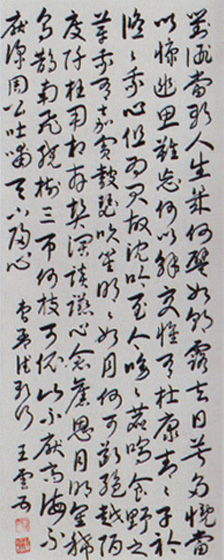 對酒當歌人生幾何譬如朝露去日苦多慨當
以慷幽思難忘何以解憂惟有杜康青青子衿
悠悠我心但為君故沈吟至今呦呦鹿鳴食野之
苹我有嘉賓鼓瑟吹笙明明如月何可斷絕越陌
度阡枉用相存契闊談讌心念舊恩月明星稀
烏鵲南飛繞樹三匝何枝可依山不厭高海不
厭深周公吐哺天下歸心 曹孟德短歌行 王雲五